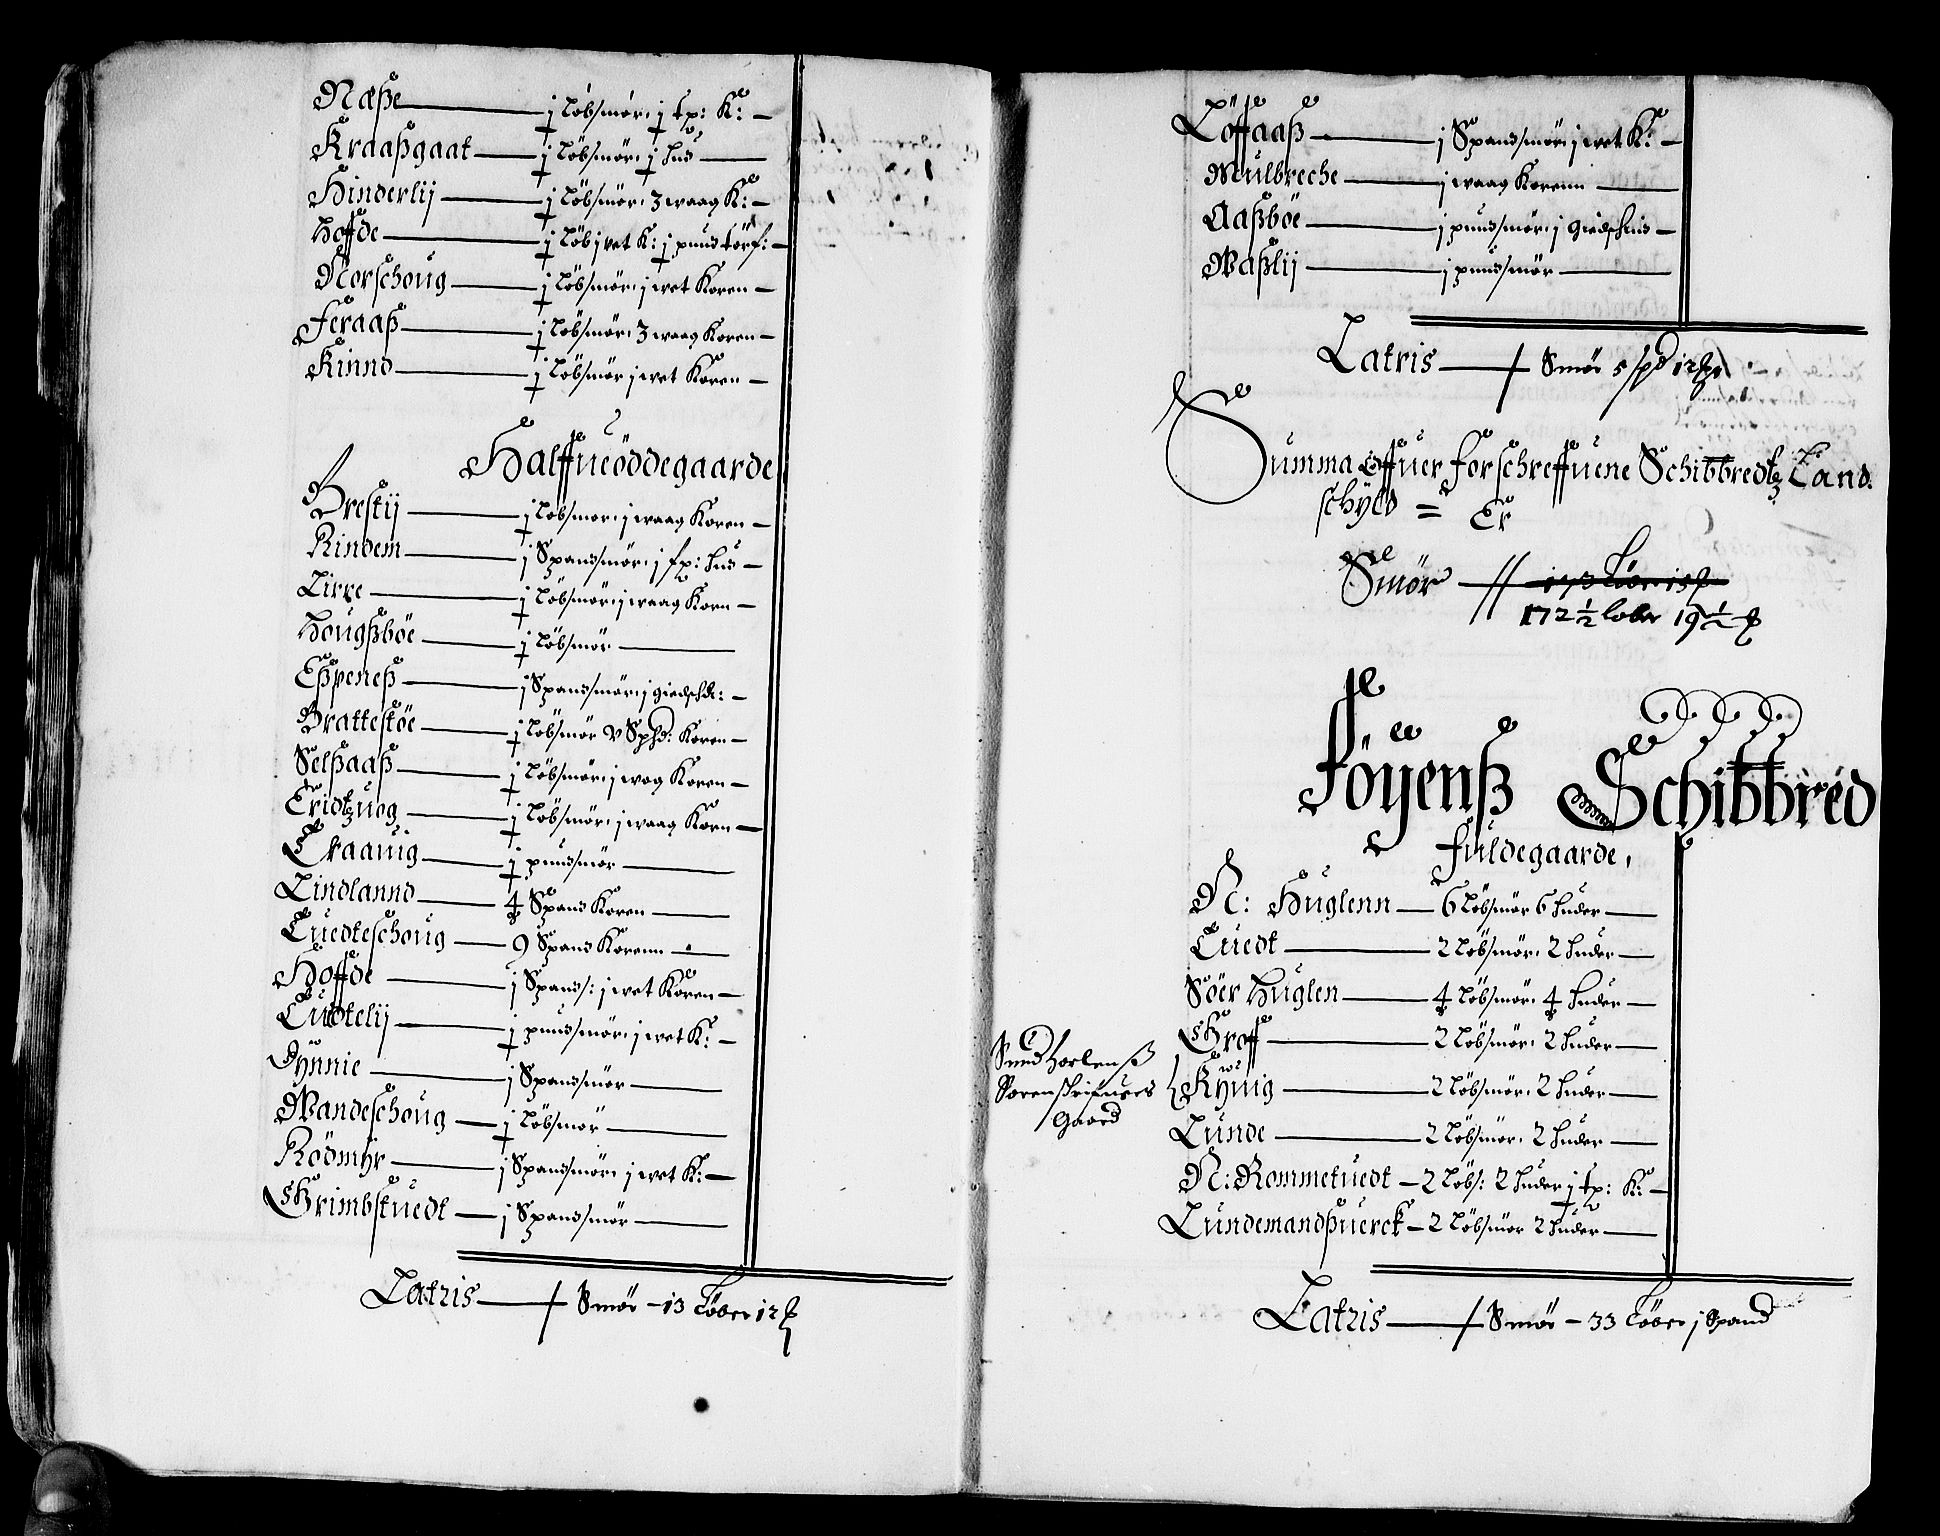 Næsze — j Löbsmör, j tp: K: —
Kraaszgaat — j Löbsmör, j hud —
Hinderlij — j Löbsmör, 3 waag K: —
Hoffde — j Löb j vet K: j pund törf: —
Norschoug — j Löbsmör, j vet Koren —
Feraasz — j Löbsmör, 3 waag Koren —
Kinnd — j Löbsmör j vet Koren —
Halffueöddegaarde
Brestij — j Löbsmör, j waag Koren —
Rindem — j Spandsmör, j sp: hud —
Lirre — j Löbsmör, j waag Korn —
Hougszböe — j Löbsmör —
Eszpenesz — j Spandsmör, j giedsk: —
Brattestöe — j Löbsmör v Sphd: Koren —
Selszaasz — j Löbsmör, j wog Koren —
Eridtzuog — j Löbsmör, j waag Korn —
Eraauig — j pundsmör —
Lindlannd — 4 Spand Koren —
Tuedteschoug — 9 Spand Korenn —
Hoffde — j Spands: j vet Koren —
Tuedtelij — j pundsmör, j vet K: —
Dynnie — j Spandsmör —
Wandeschoug — j Löbsmör —
Rödmyr — j Spandsmör, j vet K: —
Grimbstuedt — j Spandsmör —
Latris — Smör – 13 Löber 12
Löffaasz — j Spandsmör, j vet K: —
Mulbreche — j waag Korenn —
Aaszböe — j pundsmör, j giedskind —
Waszlij — j pundsmör —
Latris — Smör 5 spd 12
Summa Offuer Forschreffuene Schibbredtz Land
schyld = Er
Smör // 173 Löber 15
172 1/2 lober 19 1/2
Föyensz Schibbred
Fuldegaarde,
N: Huglenn — 6 Löbsmör 6 huder —
Tuedt — 2 Löbsmör, 2 huder —
Söer Huglen — 4 Löbsmör, 4 huder —
Groff — 2 Löbsmör, 2 huder —
Suend
Sorenskrifuers
Gaard
Rÿuig — 2 Löbsmör, 2 huder —
Lunde — 2 Löbsmör, 2 huder —
N: Rommetuedt — 2 Löbs: 2 huder j tp: K: —
Lundemandszuerck — 2 Löbsmör 2 huder —
Latris — Smör – 33 Löber j Spand